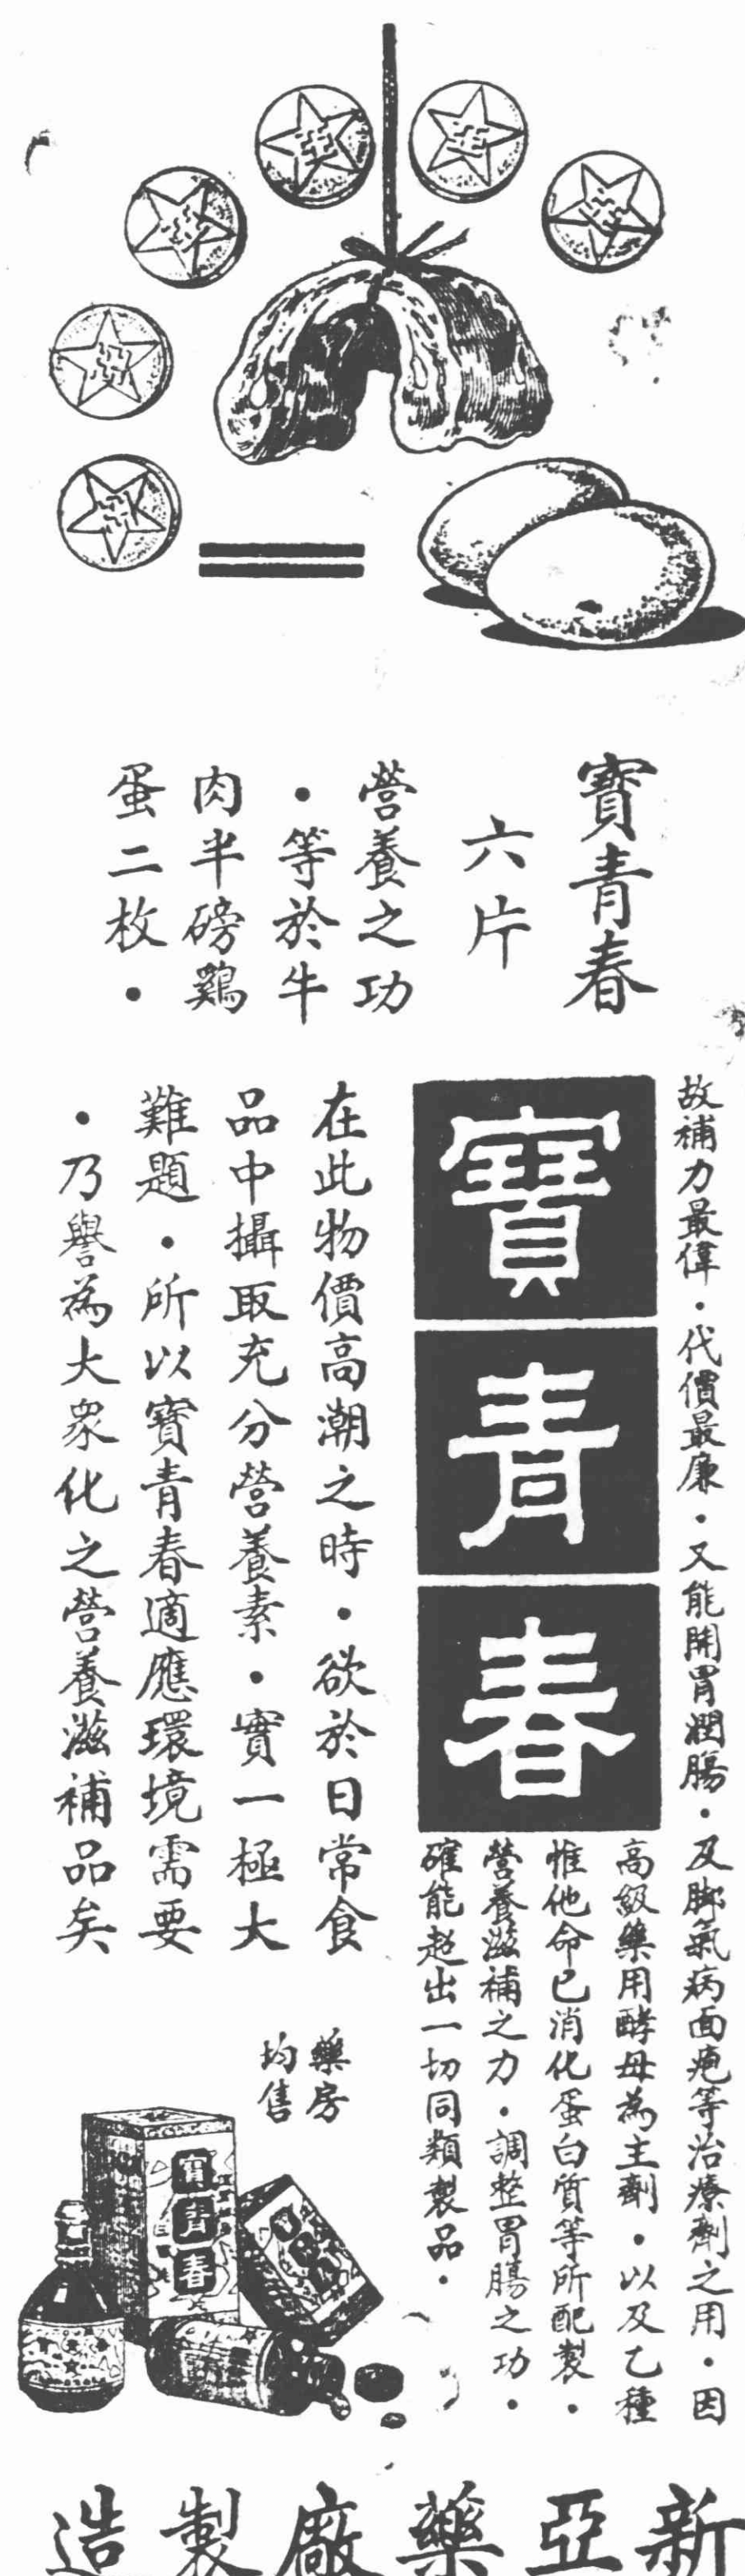 寶青春
六片
營養之功
・等於牛
肉半磅鷄
蛋二枚・
故補力最偉・代價最廉・又能開胃潤腸・及脚氣病面疱等治療劑之用・因
高級藥用酵母為主劑・以及乙種
惟他命已消化蛋白質等所配製・
營養滋補之力・調整胃腸之功・
確能超出一切同類製品・
寶青春
在此物價高潮之時・欲於日常食
品中攝取充分營養素・實一極大
難題・所以寶青春適應環境需要
・乃譽為大衆化之營養滋補品矣
藥房
均售
寶青春
新亞藥廠製造